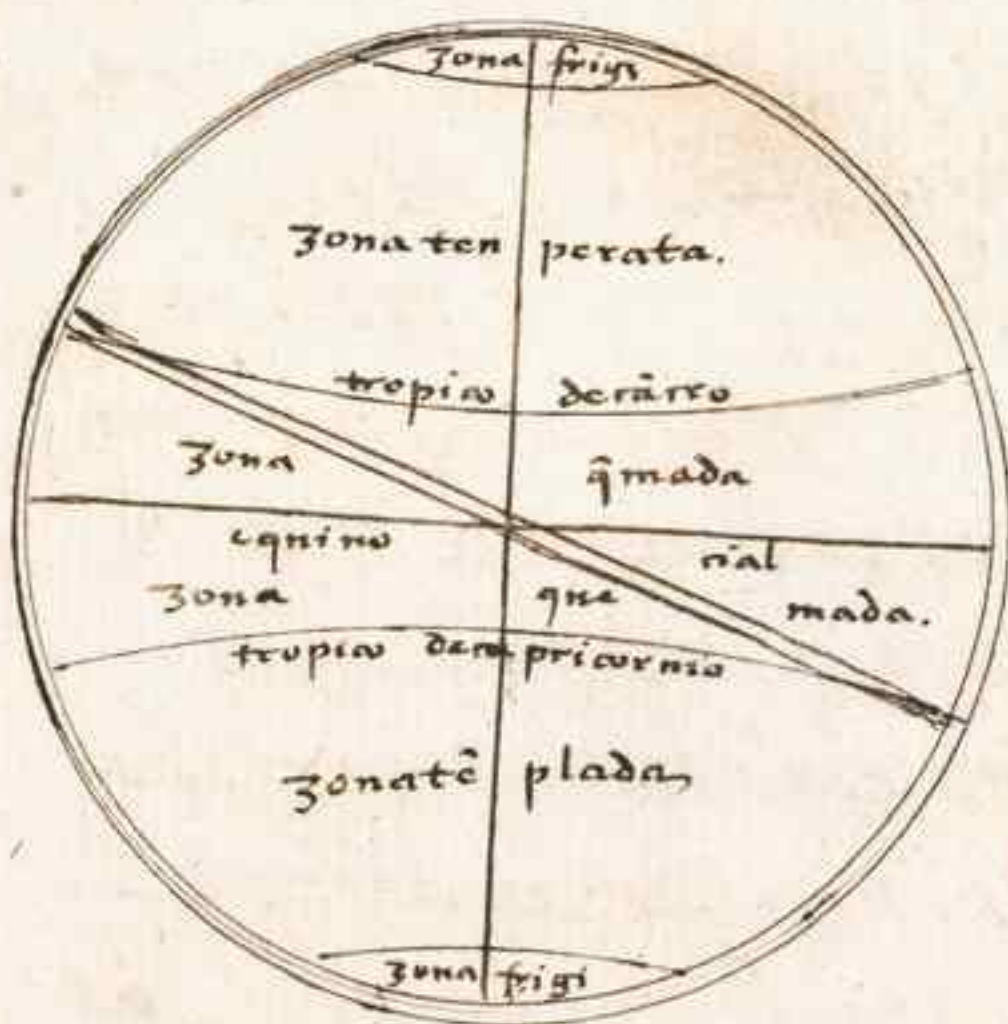 zona frigi
zona ten perata.
tropico decãcro
zona q̃mada
equino cial
zona que mada.
tropico decapricornio
zonatẽ plada
zona frigi